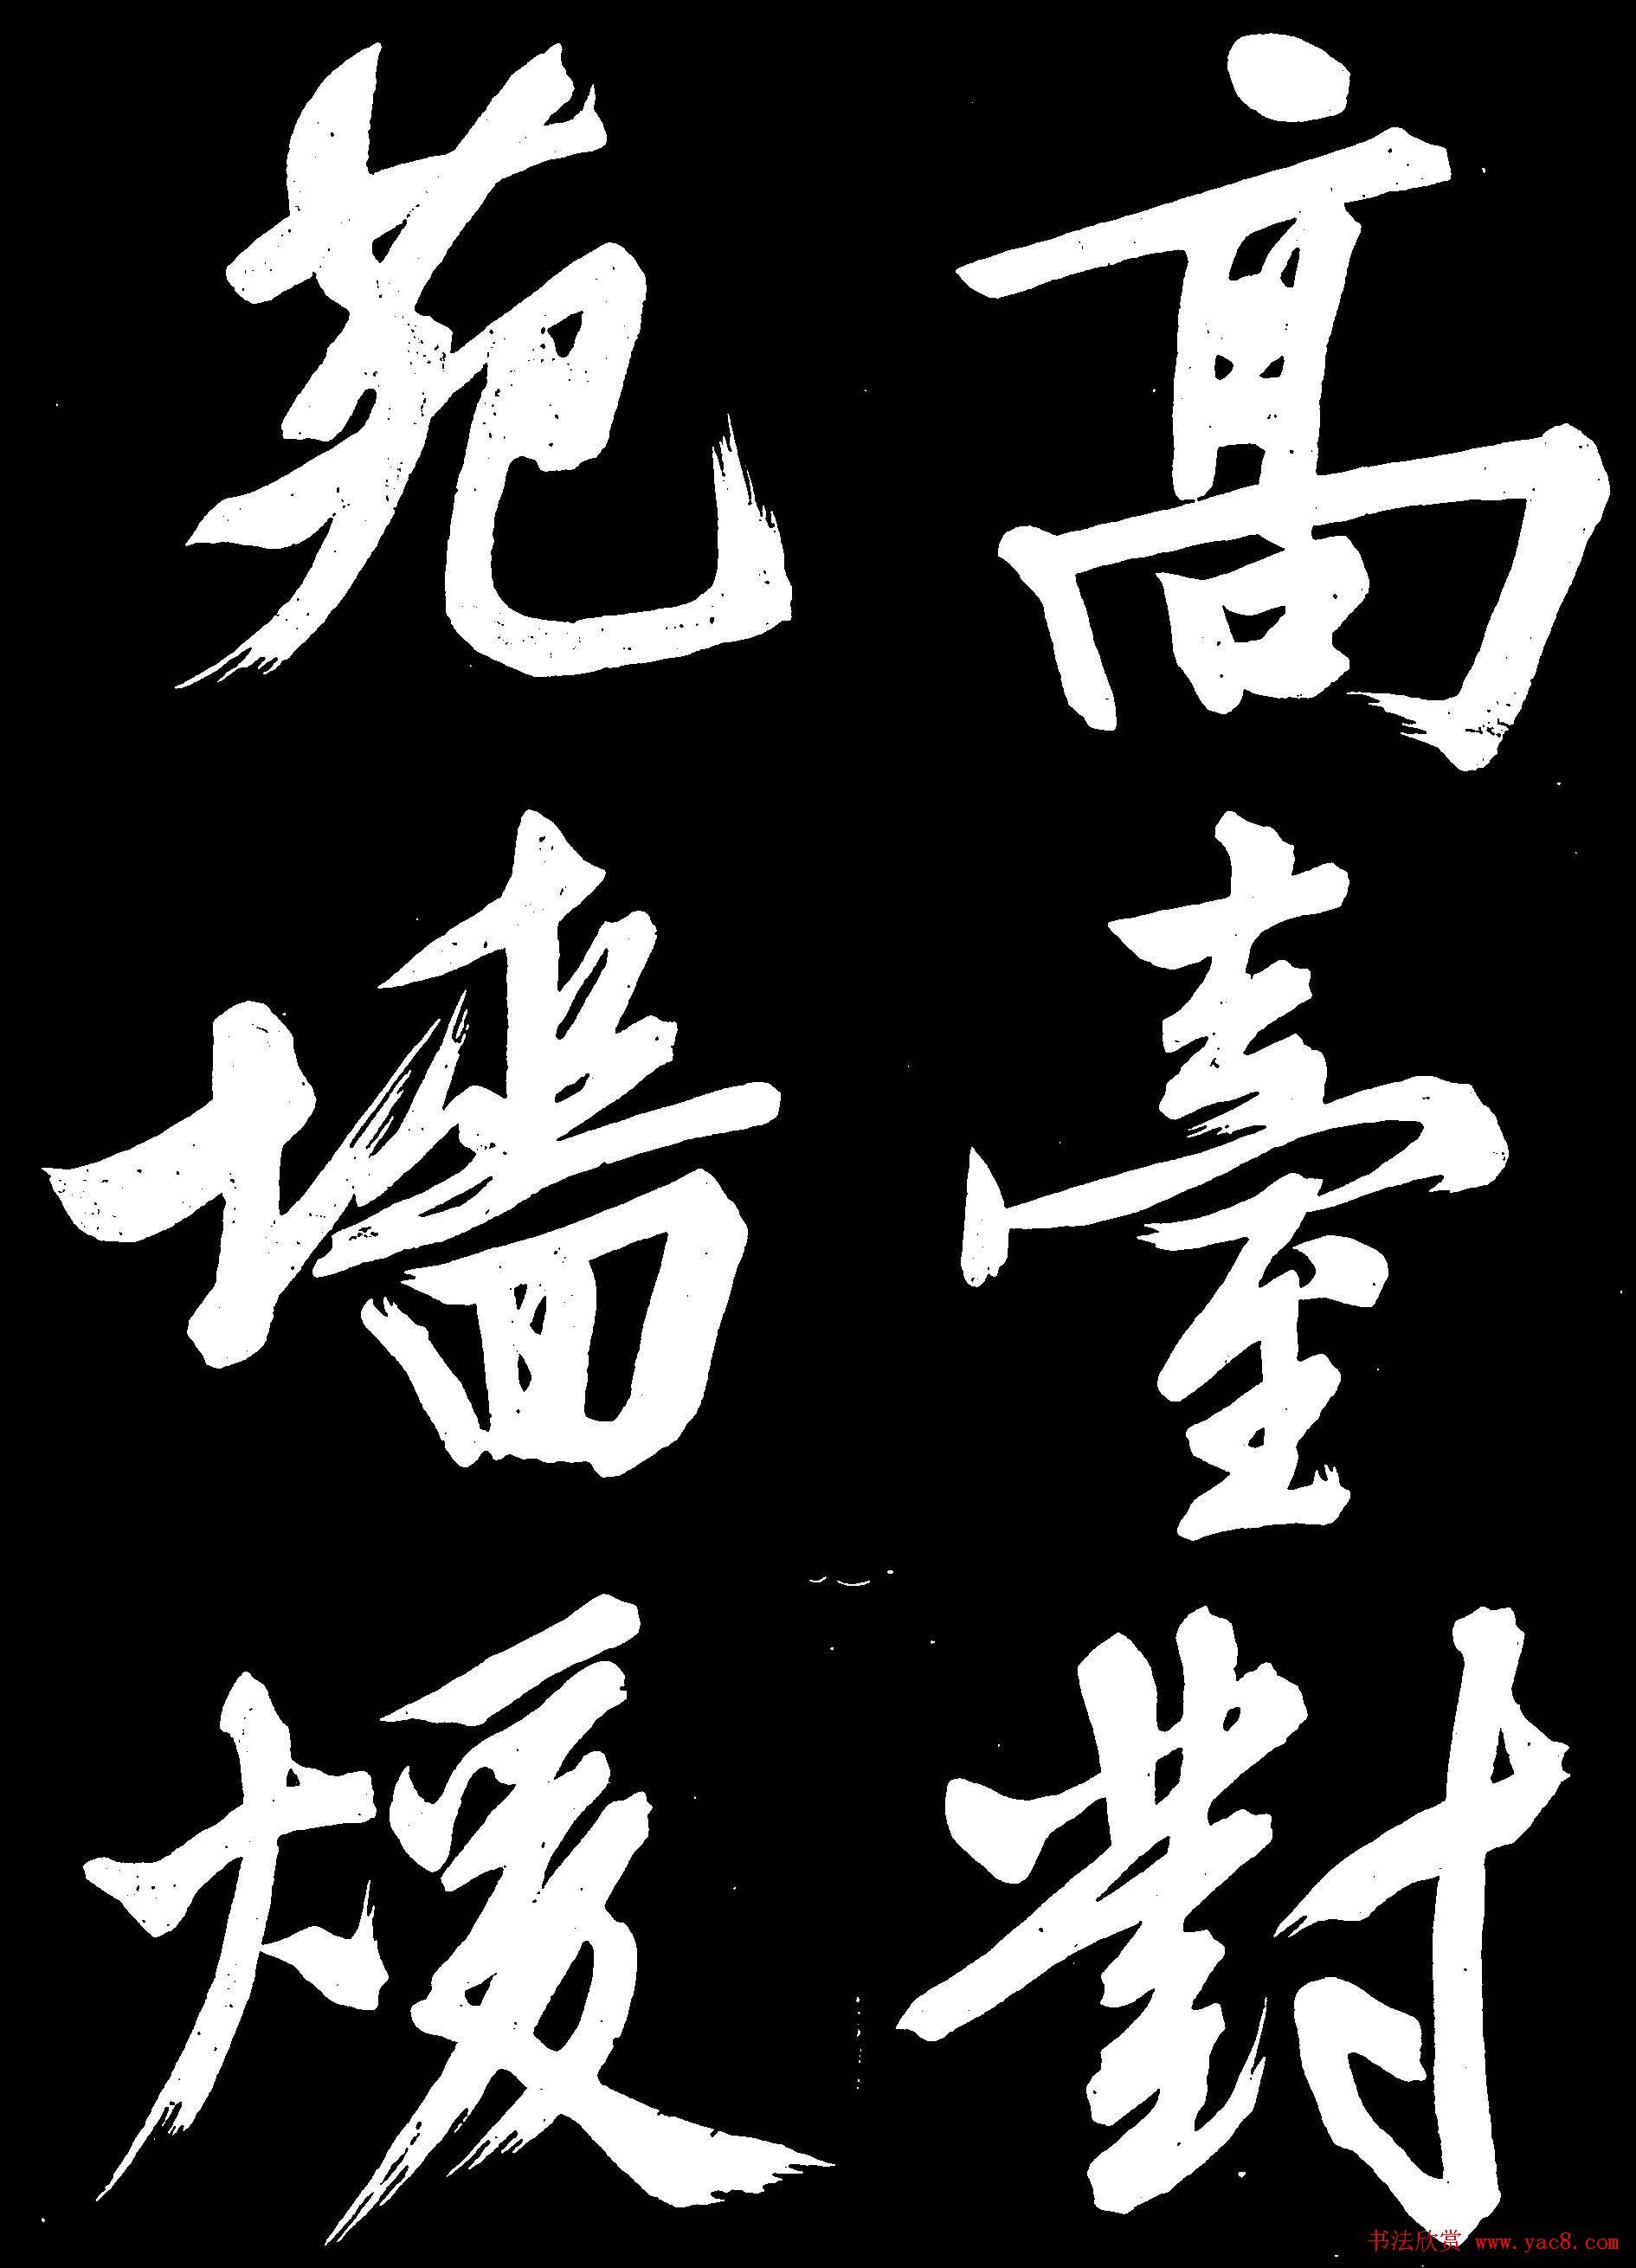 高臺對
苑墙煖
书法欣赏 www.yac8.com